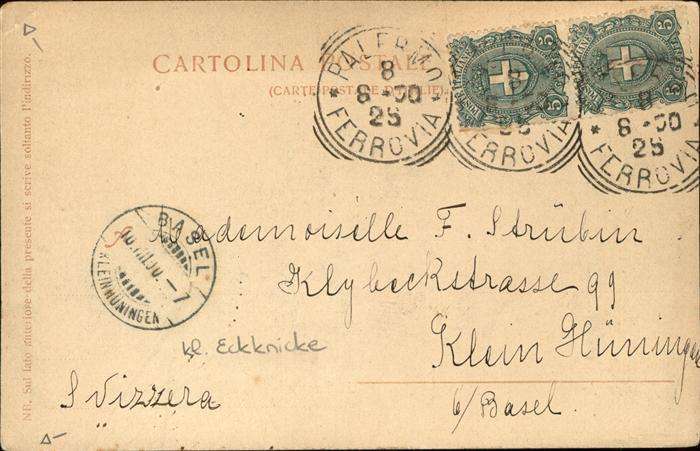 CARTOLINA POSTALE
(CARTE POSTALE D'ITALIE)
PALERMO
8
8-00
25
* FERROVIA *
FERROVIA
8
8-00
25
* FERROVIA
5
5
BASEL
10.III.00.-7
KLEINHÜNINGEN
Mademoiselle F. Strübin
Klybeckstrasse 99
Klein Hüningen
b/Basel.
Svizzera
kl. Eckknicke
NB. Sul lato anteriore della presente si scrive soltanto l'indirizzo.